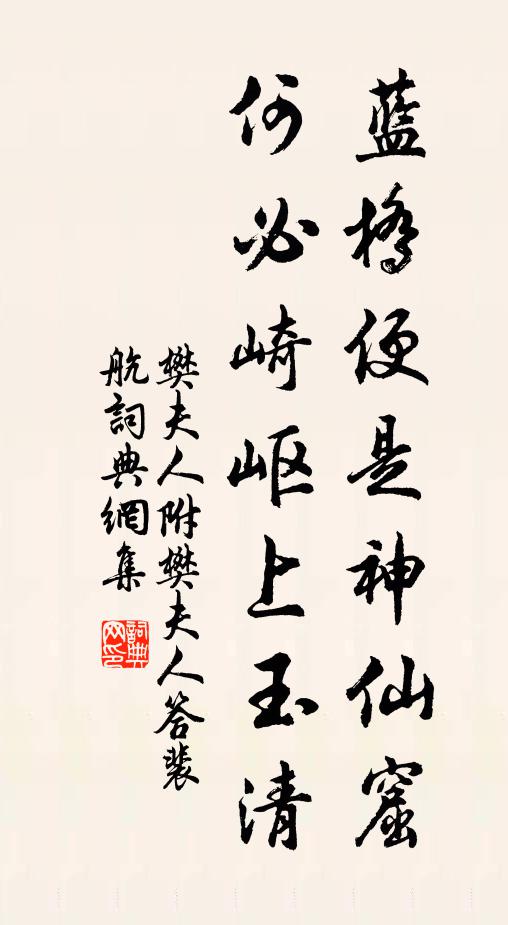 藍橋便是神仙窟
何必崎岖上玉清
樊夫人附樊夫人答裴
航詞典網集
詞典
网印